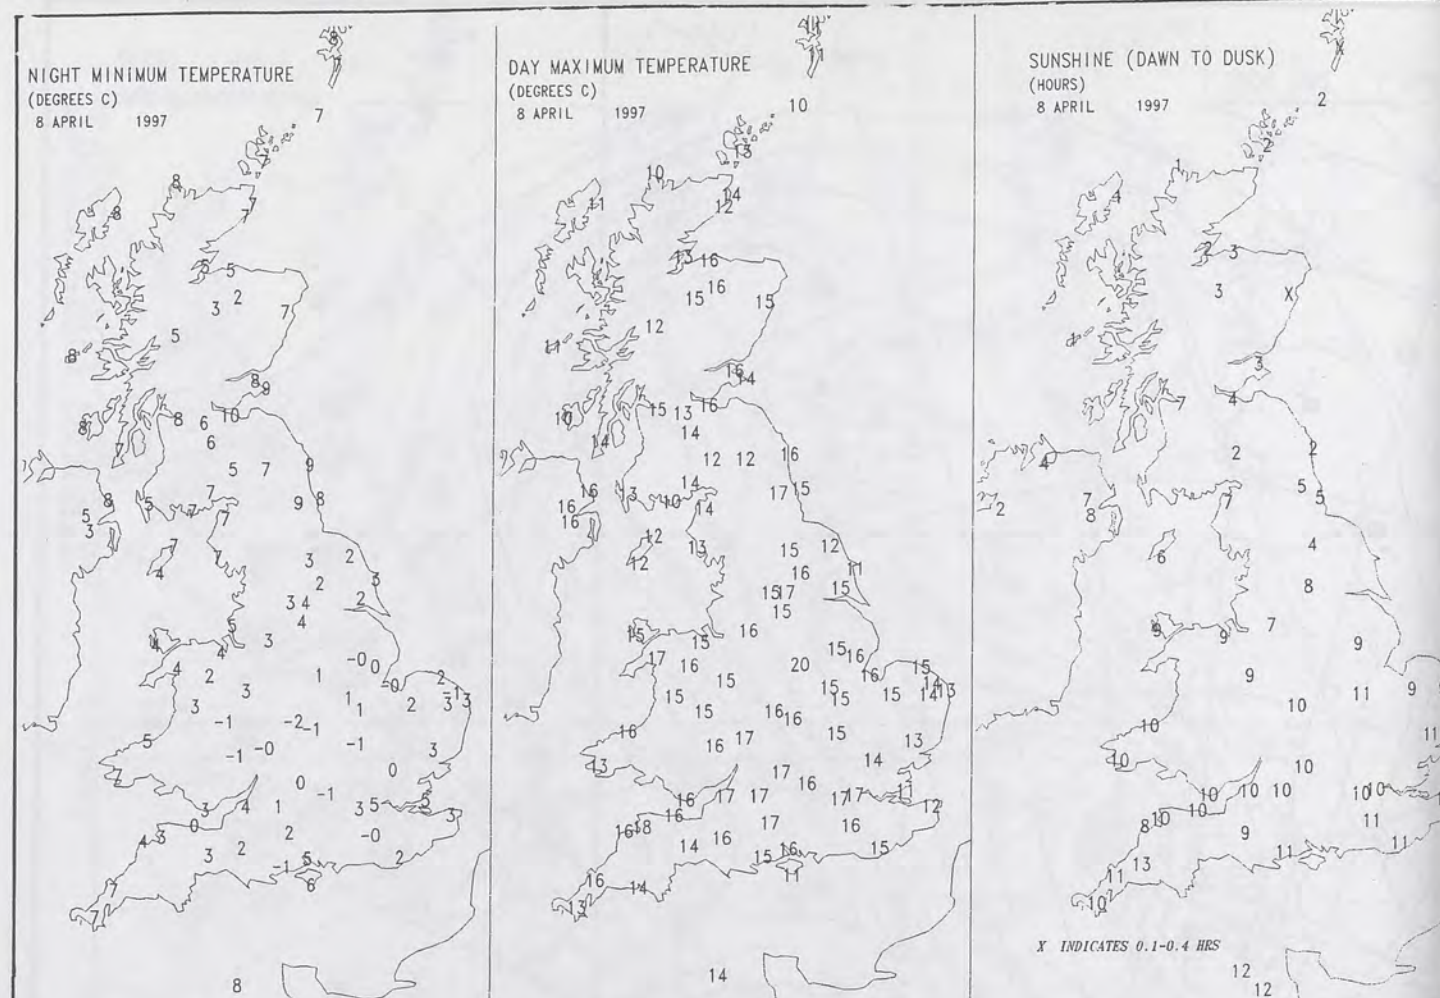 NIGHT MINIMUM TEMPERATURE
(DEGREES C)
8 APRIL 1997
8
7
8
7
8 7
5 5
3 2 7
5
8
8
9
8 8 6 10
6
7
5 7 9
7
8 5 7 9 8
5 7
3 7
7 3 2
4 2 3
3 4 2
4
5
4 3
4 -0 0
4 2 1 -0 2
3 1 -1
3 1 2 3 3
-1 -2 -1
5 -0 -1
-1 3
2 0 0
-1
3 4 1 3 5
0 3
4 3 2 -0
3 2 5 2
-1
7 6
7
8
DAY MAXIMUM TEMPERATURE
(DEGREES C)
8 APRIL 1997
11
10
10
14
11 12
13 16
15 16 15
12
11
16
14
10 15 13 16
14 14
12 12 16
14
16 13 10 17 15
16 14
16
12 13 15 12
12 16 11
15 17 15
15
15 16
17 15 15 16
16 20 16 15
15 15 14
15 15 15 14 13
15 16 16
16 17 15 13
16
13 17 14
16 11
16 17 17 17 17 12
16
16 18 17 16
14 16 16 15
15
16 14 11
13
14
SUNSHINE (DAWN TO DUSK)
(HOURS)
8 APRIL 1997
2
2
1
4
2 3
3 X
1
3
7 4
2 2
4
5
2 7 7 5
8
6 4
8
9 9 7 9
9 11 9
10
10 11
10 10
10 10 10 10 10
10
8 10 9 11
11 11
11 13
10
X INDICATES 0.1-0.4 HRS
12
12